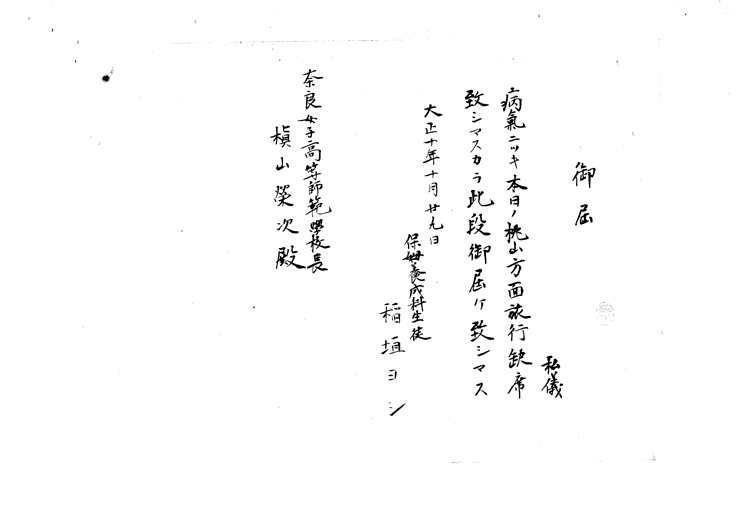 御届
私儀
病氣ニツキ本日ノ桃山方面旅行缺席
致シマスカラ此段御届ケ致シマス
大正十年十月廿九日
保姆養成科生徒
稲垣ヨシ
奈良女子高等師範學校長
槇山榮次殿